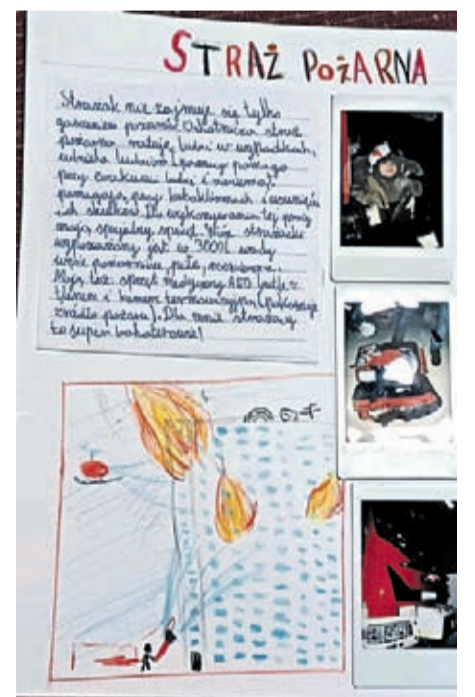 STRAŻ POŻARNA
Strażak nie zajmuje się tylko
gaszeniem pożarów. Ostatnimi straż
pożarna ratuje ludzi w wypadkach,
ludziom pomaga
przy ewakuacji ludzi i
pomagają przy kataklizmach i usunięciu
ich skutków. Do wykonywania tej pracy
mają specjalny sprzęt. Wóz strażacki
wyposażony jest w 3000L wody
węże pożarnicze, piłę,
też sprzęt medyczny AED butle z
tlenem i kamerę termowizyjną (pokazuje
źródło pożaru). Dla mnie strażacy
to super bohaterowie!